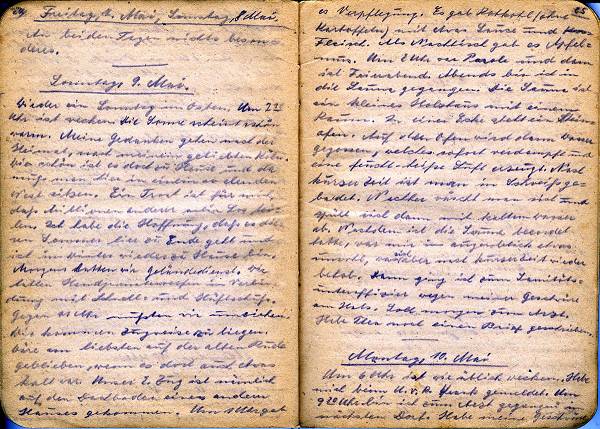 24
Freitag, 7. Mai, Sonntag, 8. Mai.
An beiden Tagen nichts beson-
deres.
Sonntag, 9. Mai.
Wieder ein Sonntag im Osten. Um 7
Uhr ist wecken. Die Sonne scheint schön
warm. Meine Gedanken gehen nach der
Heimat, nach meinem geliebten Köln.
Wie schön ist es doch zu Hause und da
muß man hier in einem elenden
Nest sitzen. Ein Trost ist für mich,
daß Millionen anderer mein Los tei-
len. Ich habe die Hoffnung, daß es die-
ser Sommer hier zu Ende geht und
ich im Winter wieder zu Hause bin.
Morgens hatten wir Geländedienst. Wir
Handgranatenwerfen in Verbin-
dung mit Schieß- und Hüftschuß.
Gegen 11 Uhr mußten wir umziehen
Wir kommen zugweise zu liegen.
Wäre am liebsten auf der alten Bude
geblieben, wenn es dort auch etwas
kalt war. Unser 2. Zug ist nämlich
auf den Dachboden eines anderen
Hauses gekommen. Um 1 Uhr gab
25
es Verpflegung. Es gab Rotkohl (ohne
Kartoffeln) mit etwas Sauce und
Fleisch. Als Nachtisch gab es Apfel-
mus. Um 2 Uhr war Parole und dann
ist Feierabend. Abends bin ich in
die Sauna gegangen. Die Sauna ist
ein kleines Holzhaus mit einem
Raum. In einer Ecke steht ein Stein-
ofen. Auf den Ofen wird dann Wasser
gegossen, welches sofort verdampft und
eine feucht-heiße Luft erzeugt. Nach
kurzer Zeit ist man in Schweiß ge-
badet. Nachher wäscht man sich und
spült sich dann mit kaltem Wasser
ab. Nachdem ich die Sauna beendet
hatte, war mir im Augenblick etwas
unwohl, was sich aber nach kurzer Zeit wieder
behob. Dann ging ich zum Sanitäts-
unteroffizier wegen meiner Geschwüre
am Hals. Soll morgen zum Arzt.
Habe noch einen Brief geschrieben.
Montag, 10. Mai
Um 6 Uhr ist wie üblich wecken. Habe
mich beim U.v.D. krank gemeldet. Um
9 Uhr bin ich zum Arzt gegangen im
nächsten Dorf. Habe meine Geschwüre